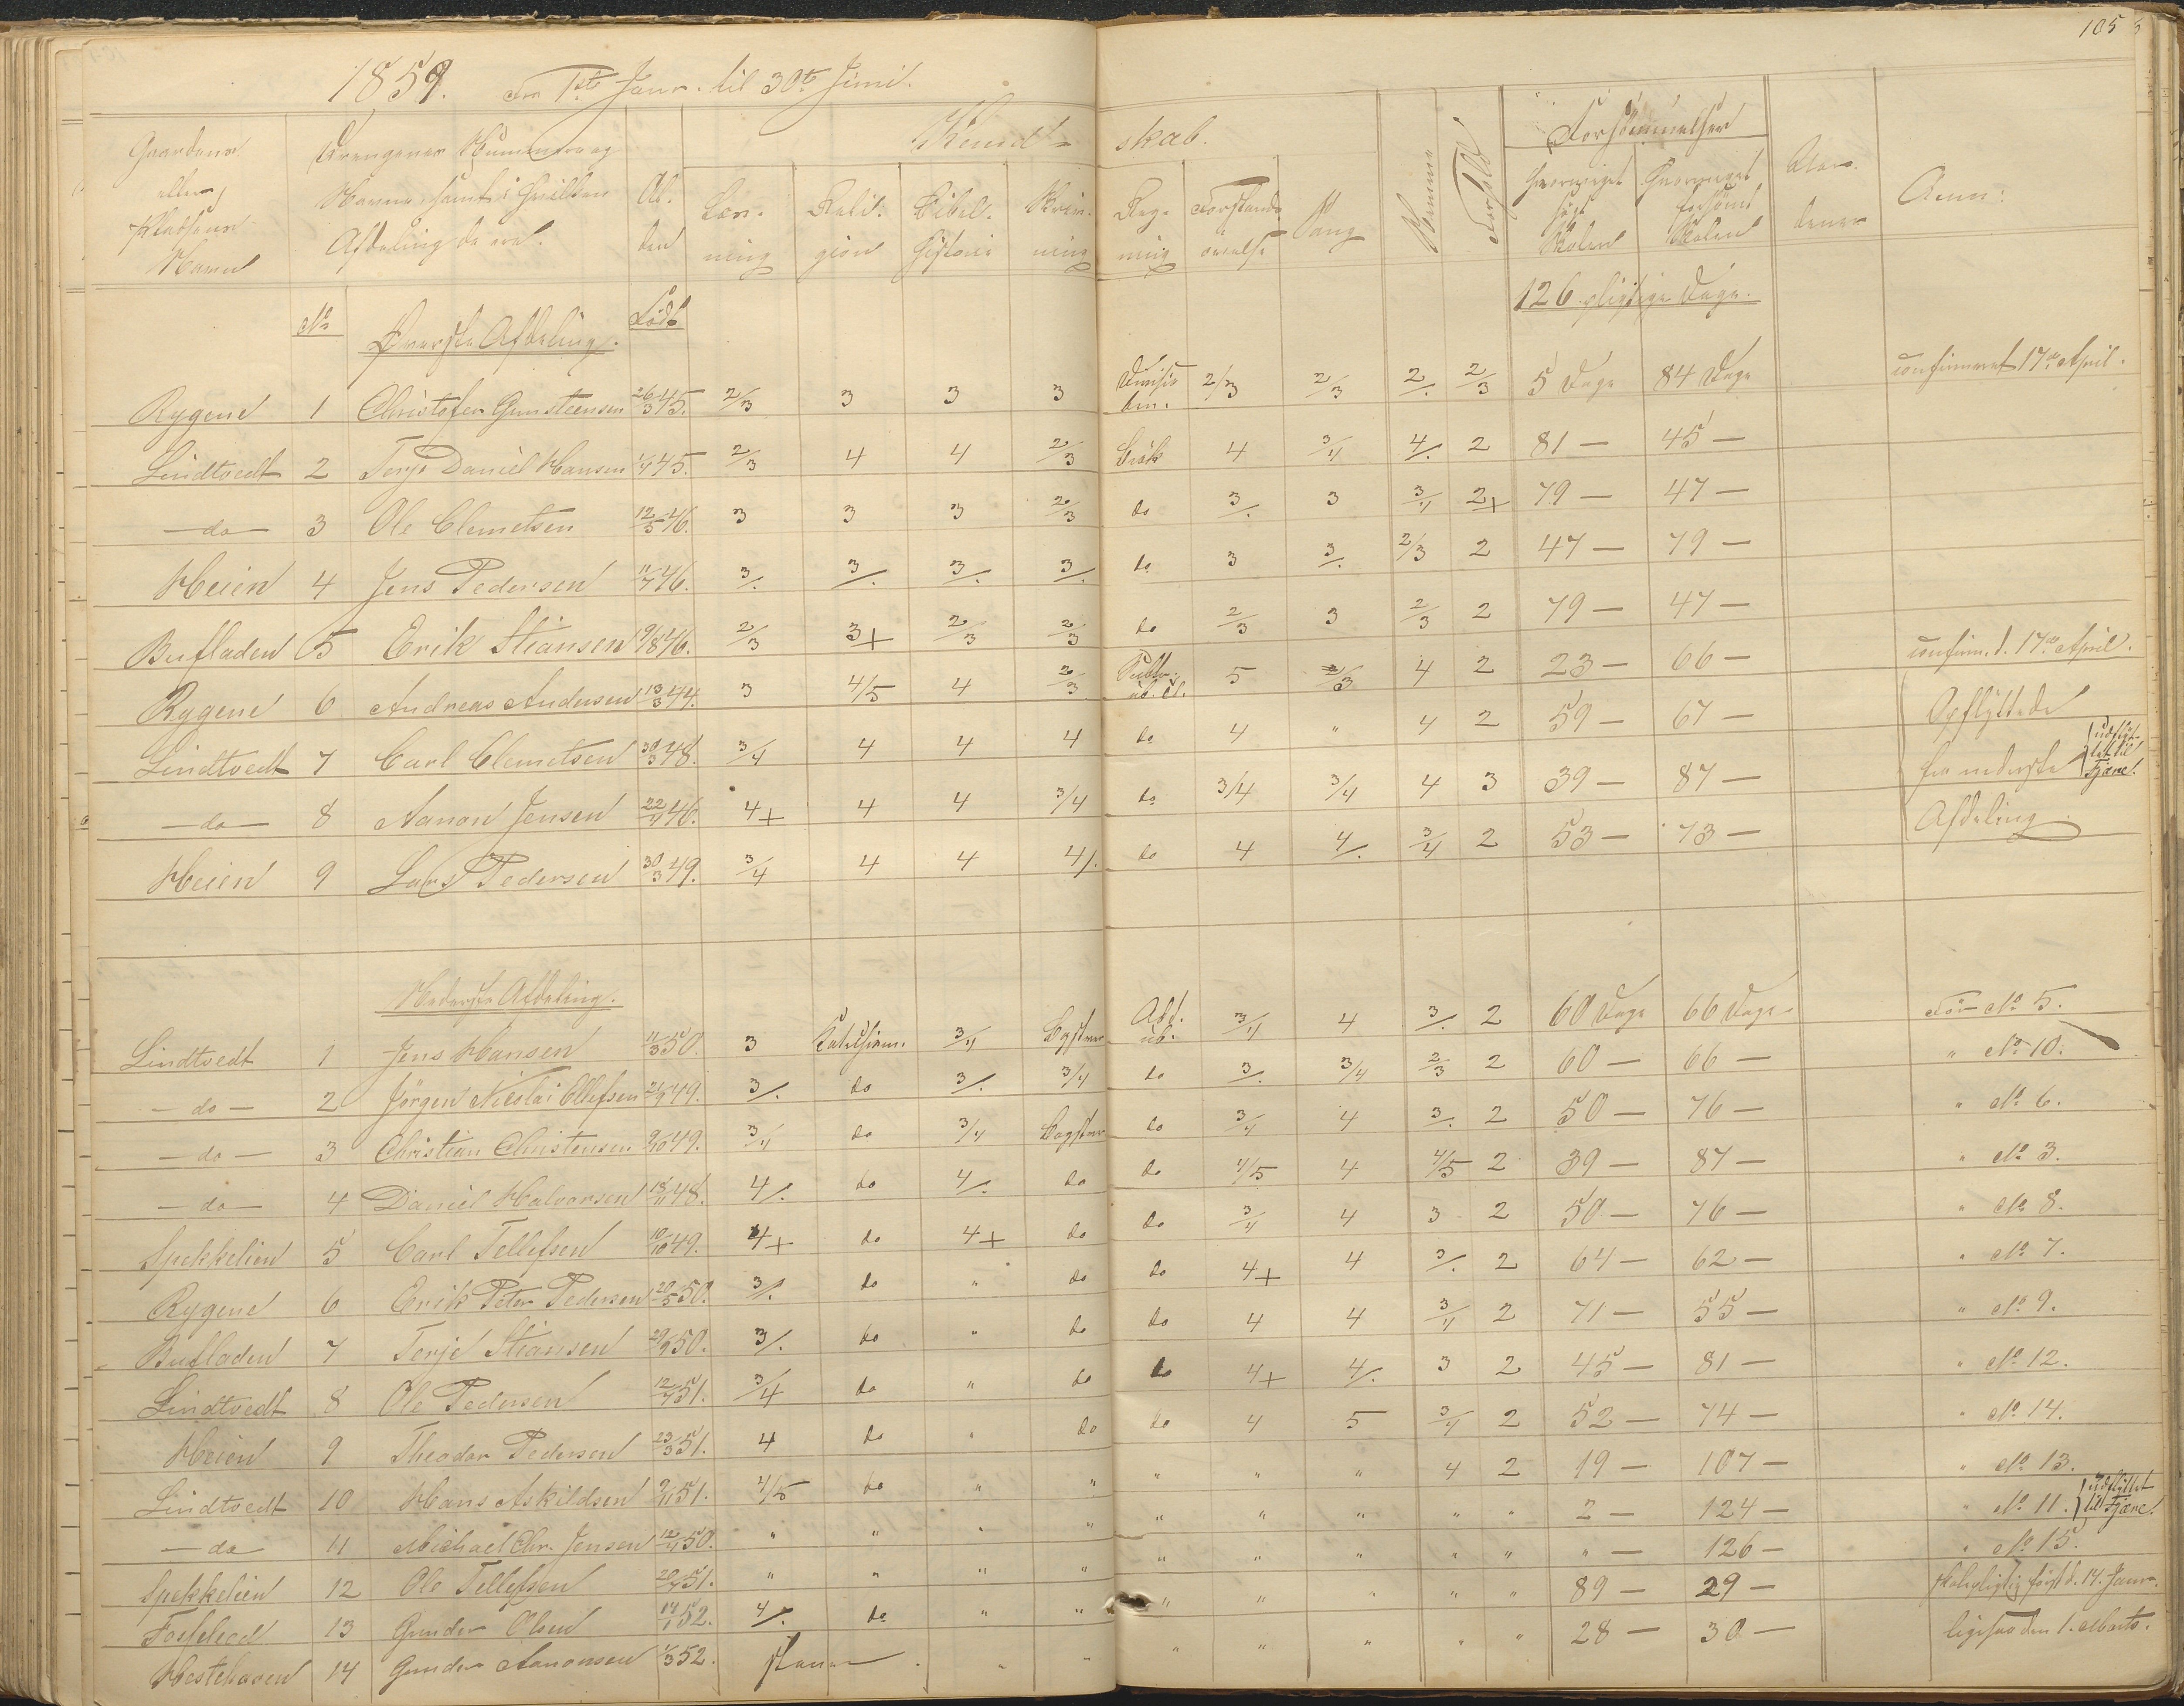 105
1859. Fra 1ste Janr. til 30te Juni.
Gaardens eller Pladsens Navn
Drengenes Nummer og Navne, samt i hvilken Afdeling de ere.
Al-der
Kund-skab.
Læs-ning
Reli-gion
Bibel-historie
Skriv-ning
Reg-ning
Forstands-øvelse
Sang
Nemme
Forhold
Forsømmelser
hvormeget søgt Skolen
hvormeget forsømt Skolen
Anm:
No Øverste Afdeling. Født 126 pligtige Dage.
Rygene 1 Christofer Gunsteensen 26/3 45. 2/3 3 3 3 2/3 2/3 2/. 2/3 5 Dage 84 Dage confirmeret 17de April.
Lindtvedt 2 Terje Daniel Hansen 1/4 45. 2/3 4 4 2/3 Brøk 4 3/4 4/. 2 81 — 45 —
— do — 3 Ole Clemetsen 12/5 46. 3 3 3 2/3 do 3/. 3 3/4 2+ 79 — 47 —
Heien 4 Jens Pedersen 11/7 46. 3/. 3/. 3/. 3/. do 3 3/. 2/3 2 47 — 79 —
Bufladen 5 Erik Stiansen 19/8 46. 2/3 3+ 2/3 2/3 do 2/3 3 2/3 2 79 — 47 —
Rygene 6 Andreas Andersen 13/3 44. 3 4/5 4 2/3 5 2/3 4 2 23 — 66 — confirm. d. 17de April.
Lindtvedt 7 Carl Clemetsen 30/3 48. 3/4 4 4 4 do 4 " 4 2 59 — 67 — Opflyttede
— do — 8 Aanon Jensen 22/11 46. 4+ 4 4 3/4 do 3/4 3/4 4 3 39 — 87 — fra nederste udflyt-tet til Fjære.
Heien 9 Lars Pedersen 30/3 49. 3/4 4 4 4/. do 4 4/. 3/4 2 53 — 73 — Afdeling.
Nederste Afdeling.
Lindtvedt 1 Jens Hansen 11/3 50. 3 Katechism. 3/4 Bogstaver Add. 3/4 4 3/. 2 60 Dage 66 Dage Før No 5.
— do — 2 Jørgen Nicolai Ollefsen 21/9 49. 3/. do 3/. 3/4 do 3/. 3/4 2/3 2 60 — 66 — " No 10.
— do — 3 Christian Christensen 9/10 49. 3/4 do 3/4 Bogstaver do 3/4 4 3/. 2 50 — 76 — " No 6.
— do — 4 Daniel Halvorsen 18/11 48. 4/. do 4/. do do 4/5 4 4/5 2 39 — 87 — " No 3.
Spekkelien 5 Carl Tellefsen 10/10 49. 4+ do 4+ do do 3/4 4 3 2 50 — 76 — " No 8.
Rygene 6 Erik Peter Pedersen 20/5 50. 3/. do " do do 4+ 4 3/. 2 64 — 62 — " No 7.
Bufladen 7 Terje Stiansen 29/9 50. 3/. do " do do 4 4 3/4 2 71 — 55 — " No 9.
Lindtvedt 8 Ole Pedersen 12/7 51. 3/4 do " do do 4+ 4/. 3 2 45 — 81 — " No 12.
Heien 9 Theodor Pedersen 23/3 51. 4 do " do do 4 5 3/4 2 52 — 74 — " No 14.
Lindtvedt 10 Hans Askildsen 9/11 51. 4/5 do " " " " " 4 2 19 — 107 — " No 13.
— do — 11 Michael Chr. Jensen 12/11 50. " " " " " " " " " 2 — 124 — " No 11. udflyttet til Fjære.
Spekkelien 12 Ole Tellefsen 20/7 51. " " " " " " " " " " — 126 — " No 15.
13 Gunder Olsen 14/1 52. 4/. do " " " " " " " 89 — 29 — skolepligtig først d. 14. Janr.
Hestehaven 14 Gunder Aanonsen 1/3 52. staver " " " " " " " 28 — 30 — ligesaa den 1. Marts.